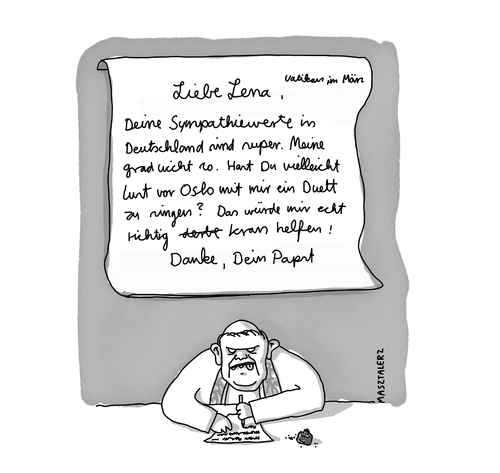 Vatikan im März
Liebe Lena,
Deine Sympathiewerte in
Deutschland sind super. Meine
grad nicht so. Hast Du vielleicht
Lust vor Oslo mit mir ein Duett
zu singen? Das würde mir echt
richtig derbe krass helfen!
Danke, Dein Papst
MASZTALERZ